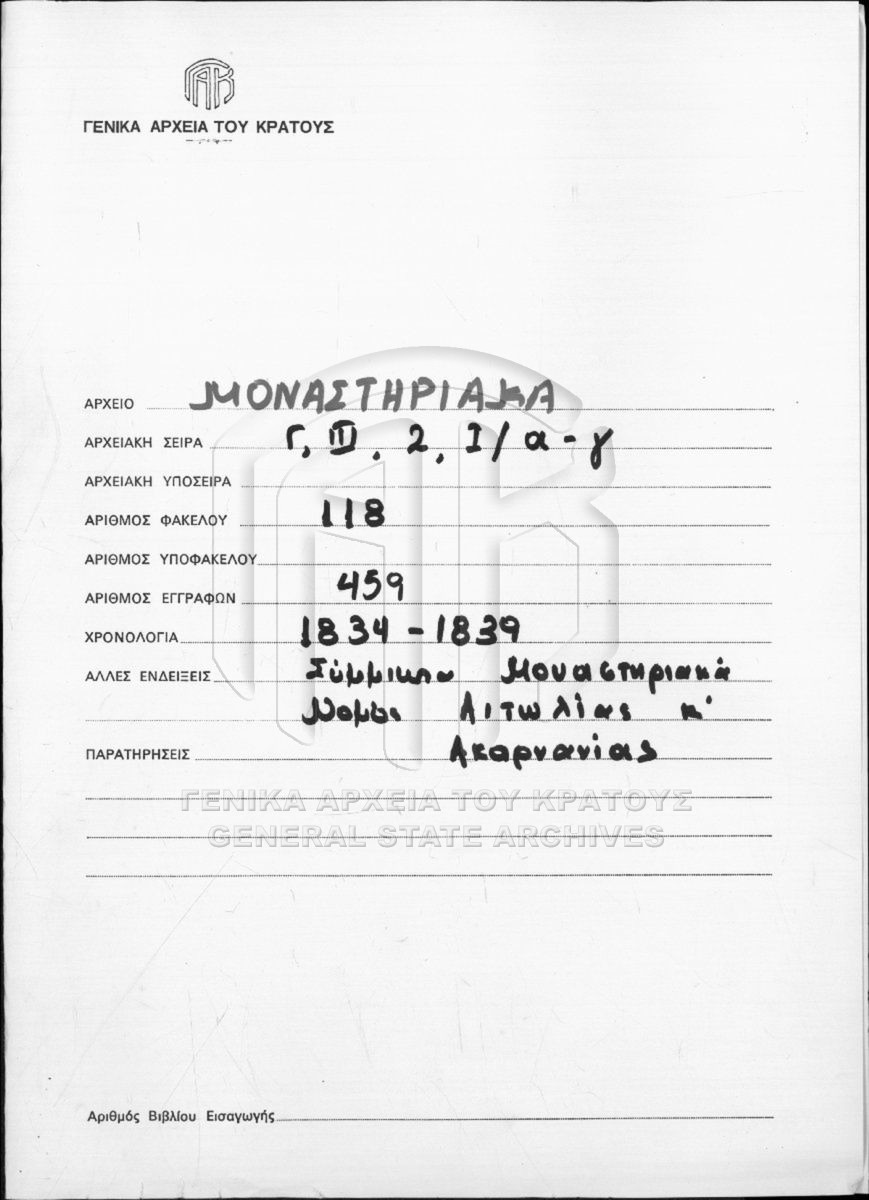 ΓΑΚ
ΓΕΝΙΚΑ ΑΡΧΕΙΑ ΤΟΥ ΚΡΑΤΟΥΣ
ΑΡΧΕΙΟ ΜΟΝΑΣΤΗΡΙΑΚΑ
ΑΡΧΕΙΑΚΗ ΣΕΙΡΑ Γ, III, 2, I/α-γ
ΑΡΧΕΙΑΚΗ ΥΠΟΣΕΙΡΑ
ΑΡΙΘΜΟΣ ΦΑΚΕΛΟΥ 118
ΑΡΙΘΜΟΣ ΥΠΟΦΑΚΕΛΟΥ
ΑΡΙΘΜΟΣ ΕΓΓΡΑΦΩΝ 459
ΧΡΟΝΟΛΟΓΙΑ 1834-1839
ΑΛΛΕΣ ΕΝΔΕΙΞΕΙΣ Σύμμικτα Μοναστηριακά
Νομού Αιτωλίας κ'
ΠΑΡΑΤΗΡΗΣΕΙΣ Ακαρνανίας
ΓΕΝΙΚΑ ΑΡΧΕΙΑ ΤΟΥ ΚΡΑΤΟΥΣ
GENERAL STATE ARCHIVES
Αριθμός Βιβλίου Εισαγωγής